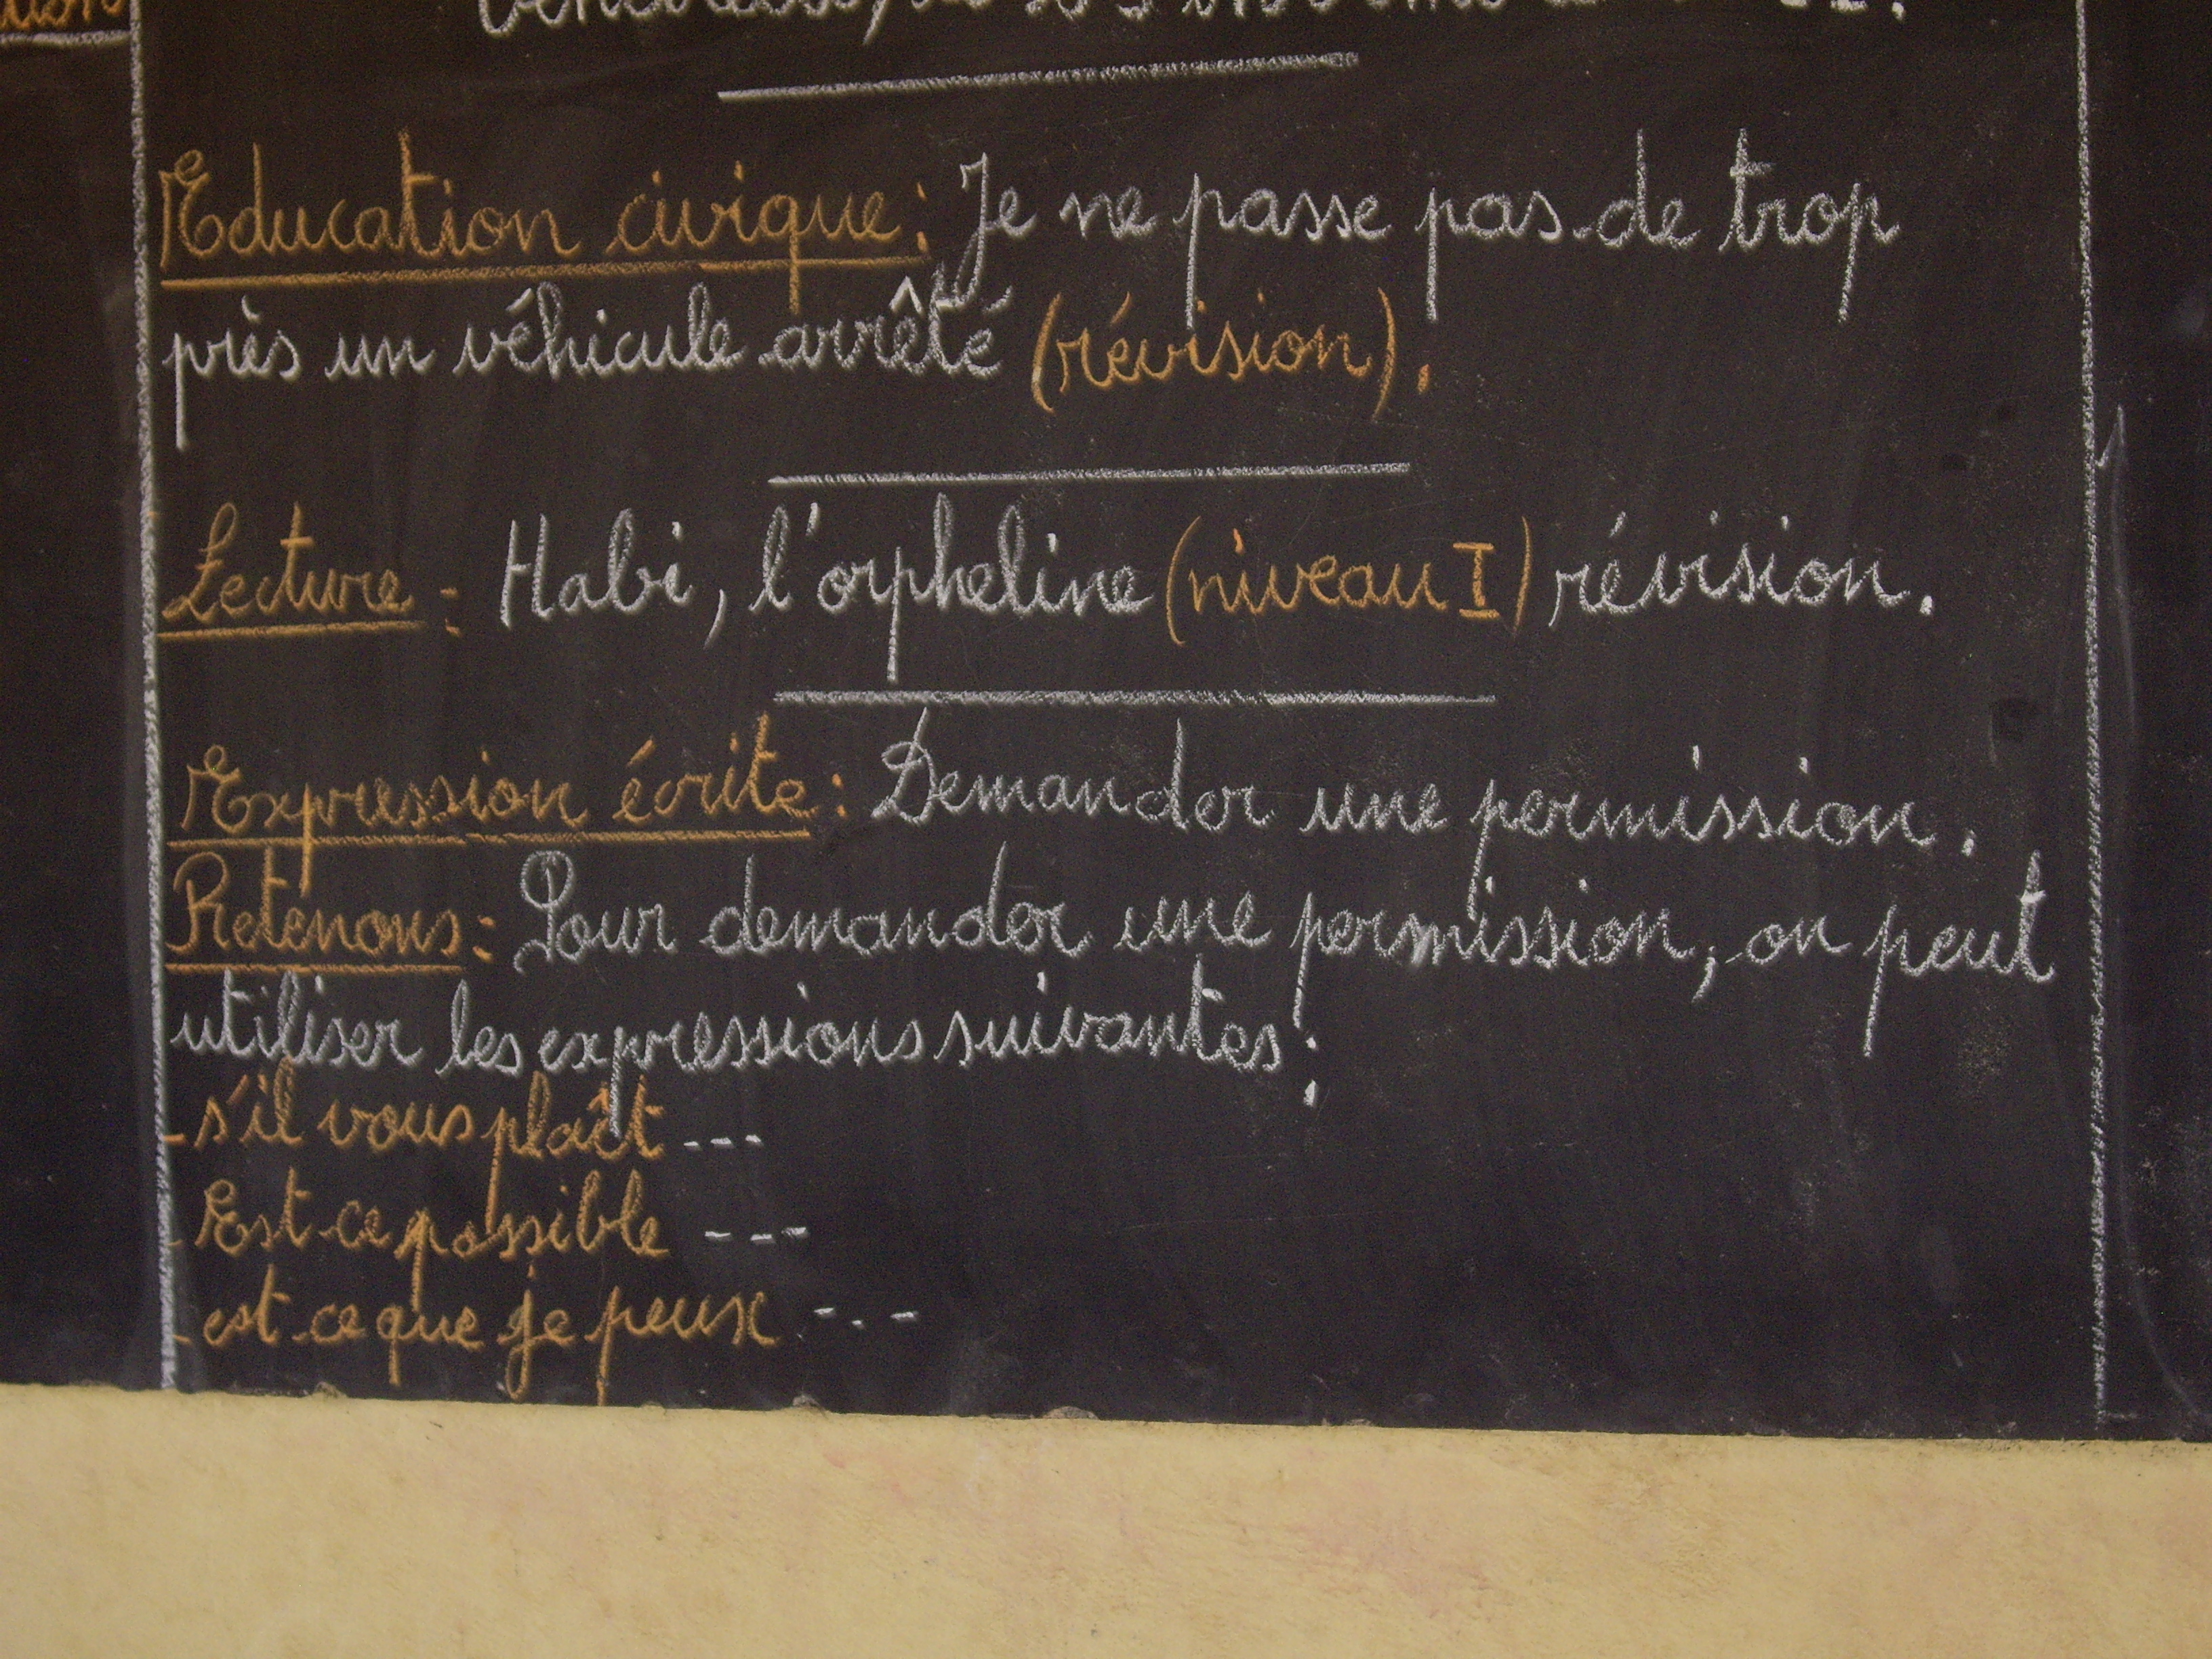 Education civique: Je ne passe pas de trop
près un véhicule arrêté (révision).
Lecture: Habi, l'orpheline (niveau I) révision.
Expression écrite: Demander une permission.
Retenons: Pour demander une permission, on peut
utiliser les expressions suivantes:
- s'il vous plaît ---
- Est-ce possible ---
- est-ce que je peux ---